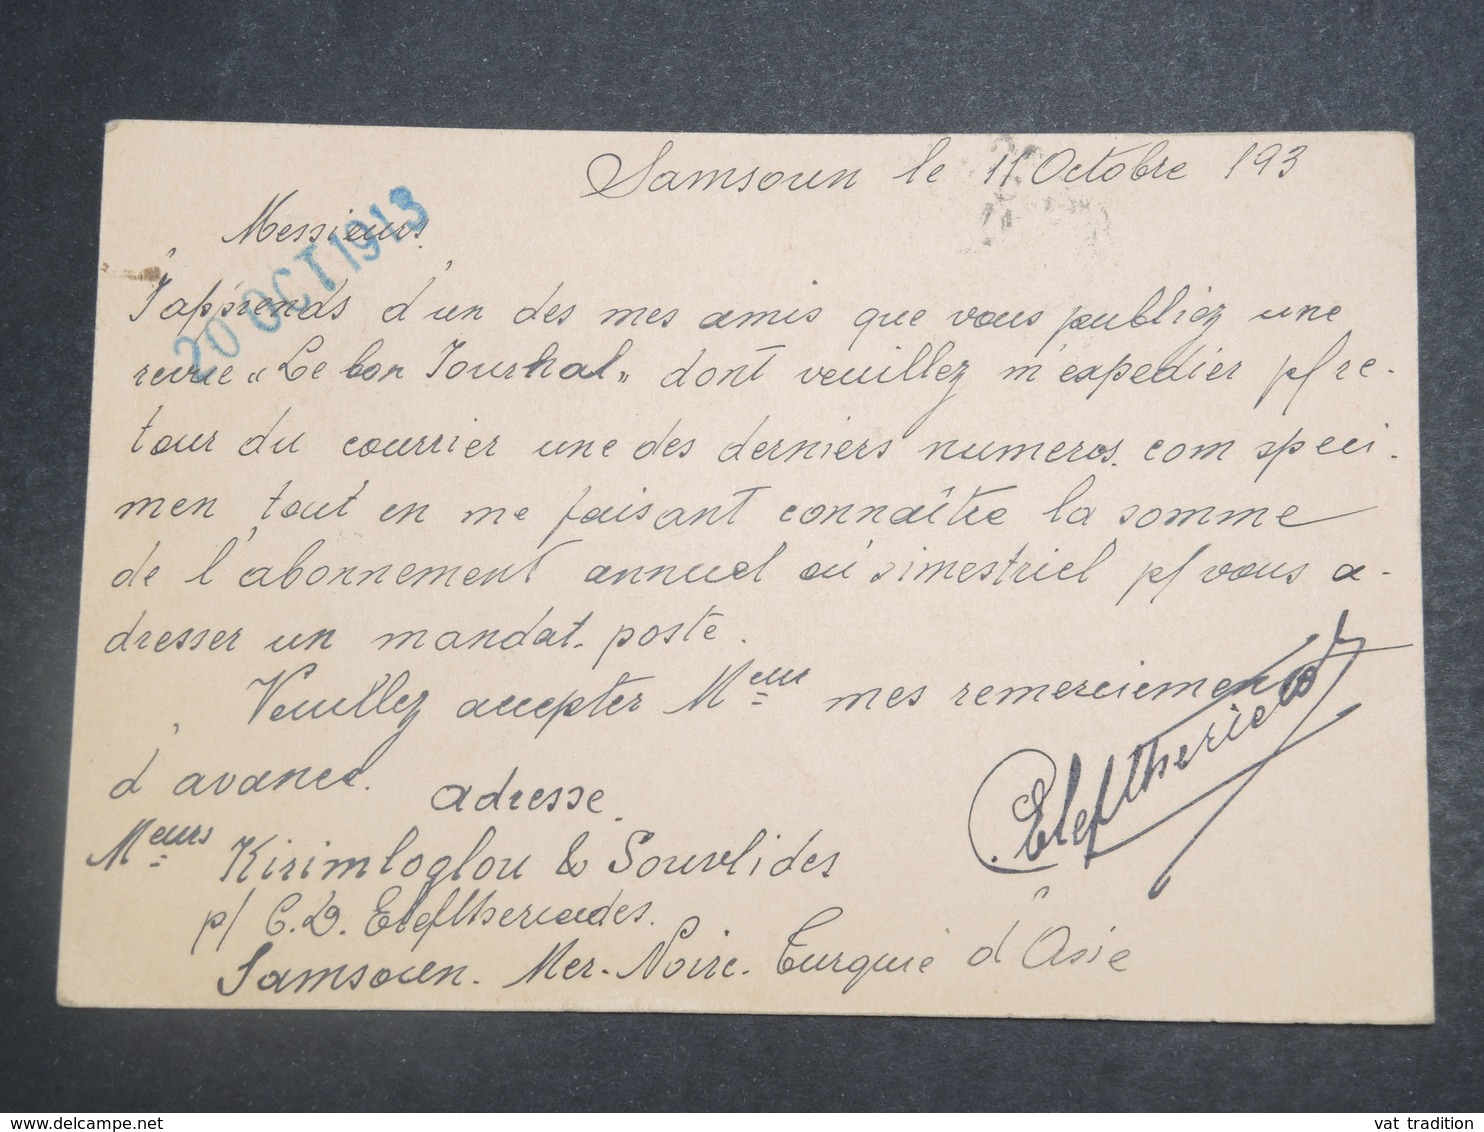 Samsoun le 11 Octobre 193
Messieurs.
20 OCT 1913
J'apprends d'un des mes amis que vous publiez une
revue "Le bon Journal" dont veuillez m'expedier p/ re-
tour du courrier une des derniers numeros. com speci-
men tout en me faisant connaître la somme
de l'abonnement annuel ou simestriel p/ vous a-
dresser un mandat-poste.
Veuillez accepter Meurs mes remerciements
d'avance.
adresse.
C. Eleftheriades
Meurs Kirimloglou & Souvlides
p/ C. D. Eleftheriades.
Samsoun. Mer-Noire. Turquie d'Asie
vat tradition